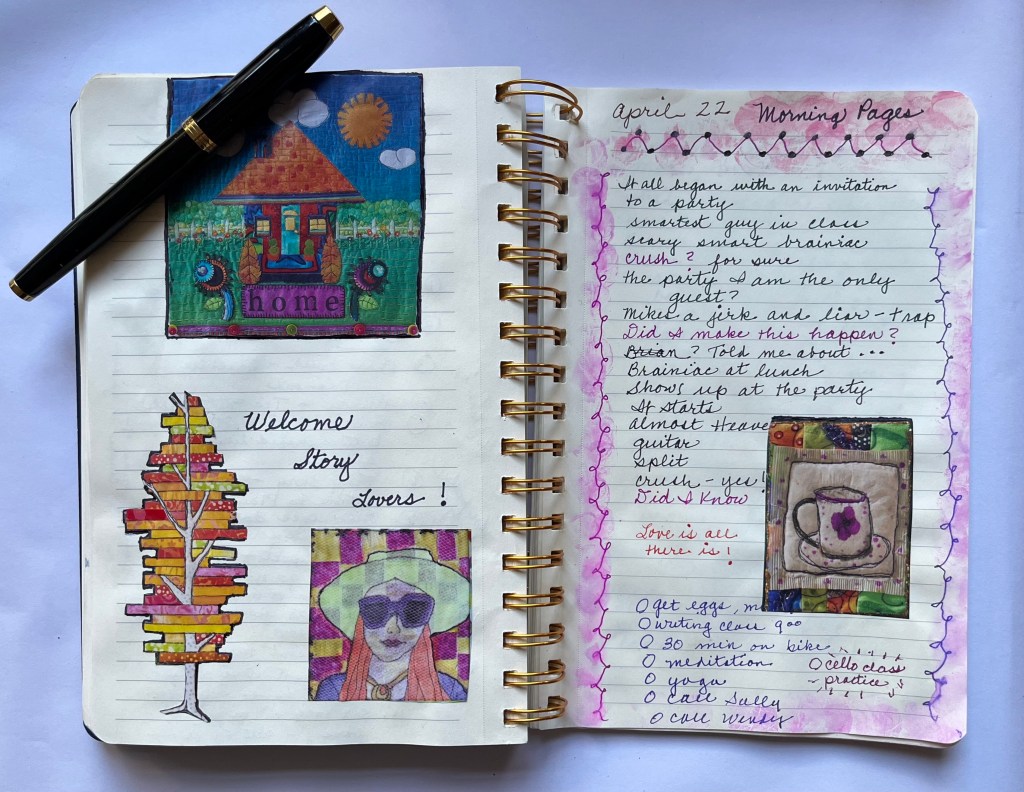 home
Welcome
Story
Lovers!
April 22 Morning Pages
It all began with an invitation
to a party
smartest guy in class
scary smart brainiac
crush? for sure
the party I am the only
guest?
Mike's a jerk and liar - trap
Did I make this happen?
Brian? Told me about ...
Brainiac at lunch
Shows up at the party
It starts
almost Heave
guitar
split
crush - yes!
Did I Know
Love is all
there is!
O get eggs, m
O writing class 900
O 30 min on bike
O meditation
O cello class
practice
O yoga
O call Sally
O call Wendy